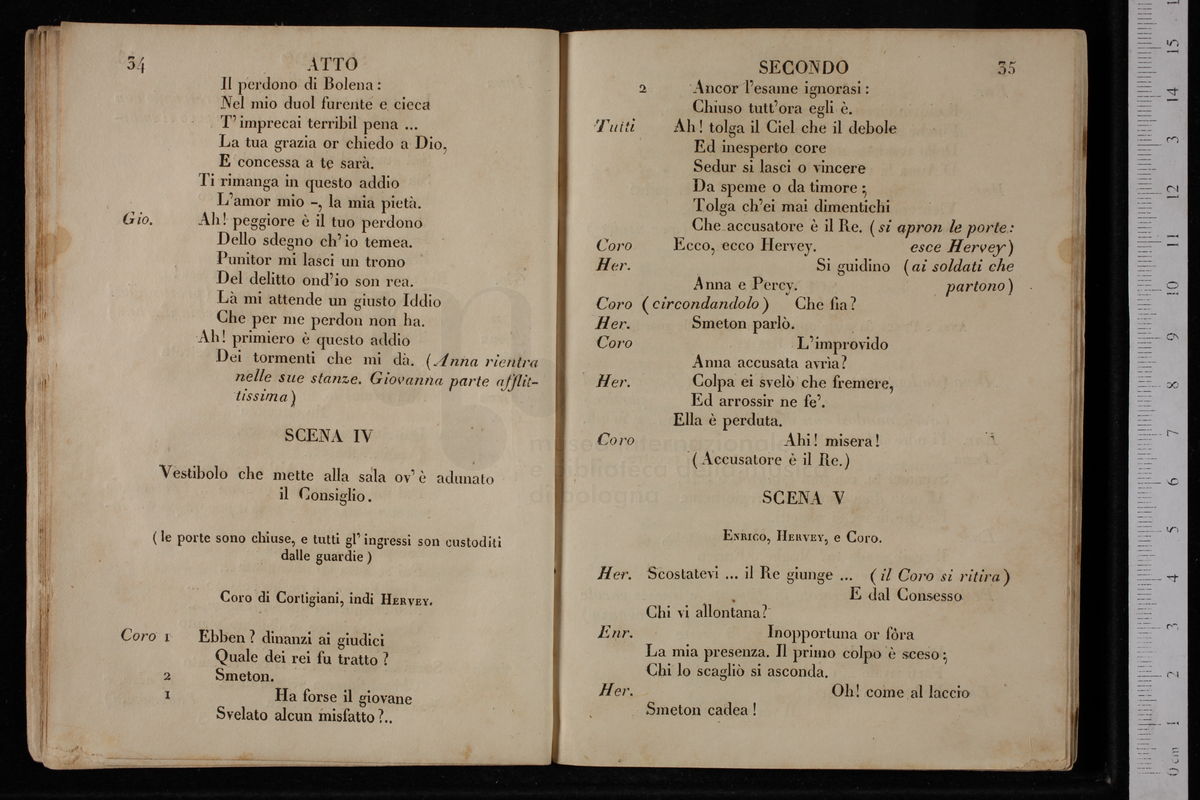 34 ATTO
Il perdono di Bolena :
Nel mio duol furente e cieca
T' imprecai terribil pena ...
La tua grazia or chiedo a Dio,
E concessa a te sarà.
Ti rimanga in questo addio
L'amor mio -, la mia pietà.
Gio. Ah! peggiore è il tuo perdono
Dello sdegno ch' io temea.
Punitor mi lasci un trono
Del delitto ond'io son rea.
Là mi attende un giusto Iddio
Che per me perdon non ha.
Ah! primiero è questo addio
Dei tormenti che mi dà. (Anna rientra
nelle sue stanze. Giovanna parte afflit-
tissima)
SCENA IV
Vestibolo che mette alla sala ov' è adunato
il Consiglio.
(le porte sono chiuse, e tutti gl' ingressi son custoditi
dalle guardie)
Coro di Cortigiani, indi HERVEY.
Coro 1 Ebben ? dinanzi ai giudici
Quale dei rei fu tratto ?
2 Smeton.
1 Ha forse il giovane
Svelato alcun misfatto ?..
SECONDO 35
2 Ancor l'esame ignorasi :
Chiuso tutt'ora egli è.
Tutti Ah! tolga il Ciel che il debole
Ed inesperto core
Sedur si lasci o vincere
Da speme o da timore ;
Tolga ch'ei mai dimentichi
Che accusatore è il Re. (si apron le porte:
Coro Ecco, ecco Hervey. esce Hervey)
Her. Si guidino (ai soldati che
Anna e Percy. partono)
Coro (circondandolo) Che fia ?
Her. Smeton parlò.
Coro L'improvido
Anna accusata avrìa?
Her. Colpa ei svelò che fremere,
Ed arrossir ne fe'.
Ella è perduta.
Coro Ahi! misera!
(Accusatore è il Re.)
SCENA V
ENRICO, HERVEY, e CORO.
Her. Scostatevi ... il Re giunge ... (il Coro si ritira)
E dal Consesso
Chi vi allontana?
Enr. Inopportuna or fôra
La mia presenza. Il primo colpo è sceso ;
Chi lo scagliò si asconda.
Her. Oh! come al laccio
Smeton cadea !
museo internazionale
e biblioteca della musica
di bologna
0 cm 1 2 3 4 5 6 7 8 9 10 11 12 13 14 15